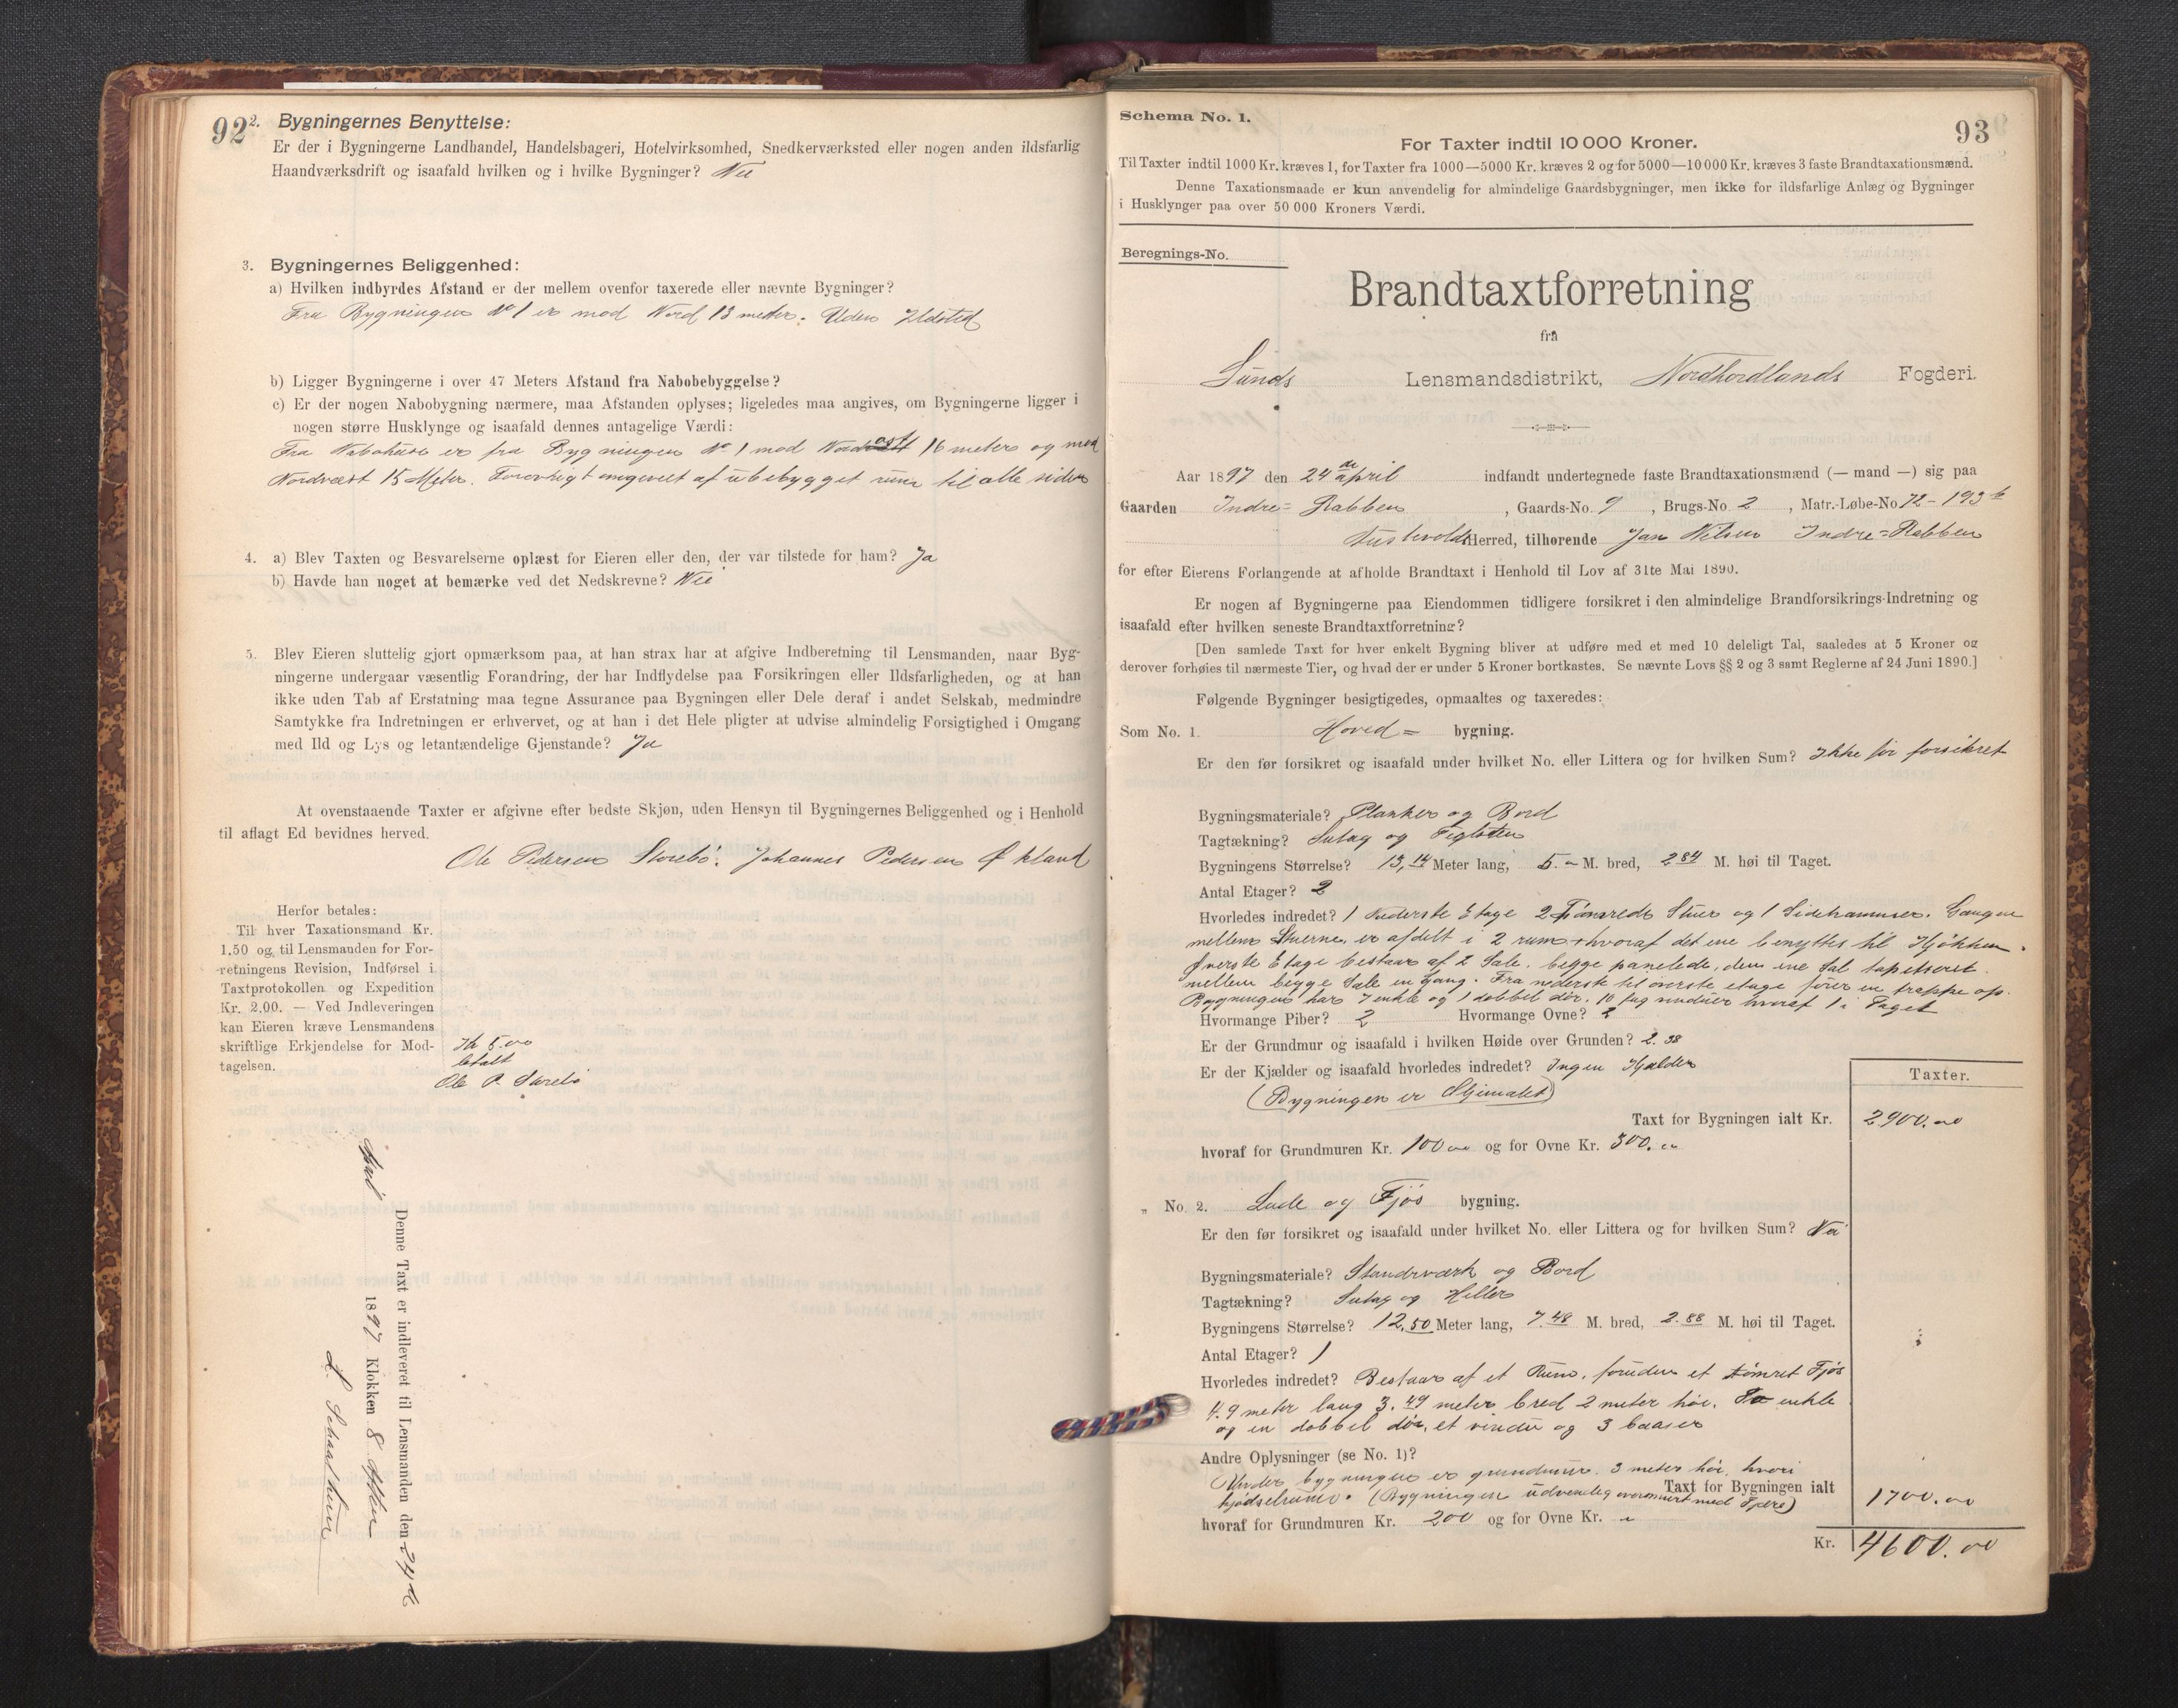 92
2. Bygningernes Benyttelse:
Er der i Bygningerne Landhandel, Handelsbageri, Hotelvirksomhed, Snedkerværksted eller nogen anden ildsfarlig
Haandværksdrift og isaafald hvilken og i hvilke Bygninger? Nei
3. Bygningernes Beliggenhed:
a) Hvilken indbyrdes Afstand er der mellem ovenfor taxerede eller nævnte Bygninger?
Fra Bygningen No 1 er mod Nord 13 meter. Uden Ildsted
b) Ligger Bygningerne i over 47 Meters Afstand fra Nabobebyggelse?
c) Er der nogen Nabobygning nærmere, maa Afstanden oplyses; ligeledes maa angives, om Bygningerne ligger i
nogen større Husklynge og isaafald dennes antagelige Værdi:
Fra Nabohuse er fra Bygningen No 1 mod Nordost 16 meter og mod
Nordvæst 15 Meter. Forøvrigt omgivelt af ubebygget rum til alle sider
4. a) Blev Taxten og Besvarelserne oplæst for Eieren eller den, der var tilstede for ham? Ja
b) Havde han noget at bemærke ved det Nedskrevne? Nei
5. Blev Eieren sluttelig gjort opmærksom paa, at han strax har at afgive Indberetning til Lensmanden, naar Byg-
ningerne undergaar væsentlig Forandring, der har Indflydelse paa Forsikringen eller Ildsfarligheden, og at han
ikke uden Tab af Erstatning maa tegne Assurance paa Bygningen eller Dele deraf i andet Selskab, medmindre
Samtykke fra Indretningen er erhvervet, og at han i det Hele pligter at udvise almindelig Forsigtighed i Omgang
med Ild og Lys og letantændelige Gjenstande? Ja
At ovenstaaende Taxter er afgivne efter bedste Skjøn, uden Hensyn til Bygningernes Beliggenhed og i Henhold
til aflagt Ed bevidnes herved.
Ole Pedersen Storebø. Johannes Pedersen Økland
Herfor betales:
Til hver Taxationsmand Kr.
1.50 og til Lensmanden for For-
retningens Revision, Indførsel i
Taxtprotokollen og Expedition
Kr. 2,00. — Ved Indleveringen
kan Eieren kræve Lensmandens
skriftlige Erkjendelse for Mod-
tagelsen.
Kr 5.00
betalt
Ole P. Storebø
Denne Taxt er indleveret til Lensmanden den 24de
April 1897 Klokken 8 Aften
Schema No. 1.
93
For Taxter indtil 10 000 Kroner.
Til Taxter indtil 1000 Kr. kræves 1, for Taxter fra 1000—5000 Kr. kræves 2 og for 5000—10 000 Kr. kræves 3 faste Brandtaxationsmænd.
Denne Taxationsmaade er kun anvendelig for almindelige Gaardsbygninger, men ikke for ildsfarlige Anlæg og Bygninger
i Husklynger paa over 50 000 Kroners Værdi.
Beregnings-No.
Brandtaxtforretning
fra
Sunds Lensmandsdistrikt, Nordhordlands Fogderi.
Aar 1897 den 24de April indfandt undertegnede faste Brandtaxationsmænd (— mand —) sig paa
Gaarden Indre= Rabben, Gaards-No. 9, Brugs-No. 2, Matr.-Løbe-No. 72 - 193b
Austevolds Herred, tilhørende Jan Nilsen Indre=Rabben
for efter Eierens Forlangende at afholde Brandtaxt i Henhold til Lov af 31te Mai 1890.
Er nogen af Bygningerne paa Eiendommen tidligere forsikret i den almindelige Brandforsikrings-Indretning og
isaafald efter hvilken seneste Brandtaxtforretning?
[Den samlede Taxt for hver enkelt Bygning bliver at udføre med et med 10 deleligt Tal, saaledes at 5 Kroner og
derover forhøies til nærmeste Tier, og hvad der er under 5 Kroner bortkastes. Se nævnte Lovs §§ 2 og 3 samt Reglerne af 24 Juni 1890.]
Følgende Bygninger besigtigedes, opmaaltes og taxeredes:
Som No. 1. Hoved= bygning.
Er den før forsikret og isaafald under hvilket No. eller Littera og for hvilken Sum? Ikke før forsikret
Bygningsmateriale? Planker og Bord
Tagtækning? Sutag og Teglsten
Bygningens Størrelse? 13,14 Meter lang, 5.- M. bred, 2.84 M. høi til Taget.
Antal Etager? 2
Hvorledes indredet? I Nederste Etage 2 Stuer og 1 Sidekammer. Gangen
mellem Stuerne er afdelt i 2 rum hvoraf det ene benyttes til Kjøkken.
Øverste Etage bestaar af 2 Sale. begge panelede, den ene Sal tapetseret.
mellem begge Sale en Gang. Fra nederste til øverste etage fører en trappe op.
Bygningen har 7 enkle og 1 dobbel dør. 10 fag vinduer hvoraf 1 i Taget
Hvormange Piber? 2 Hvormange Ovne? 2
Er der Grundmur og isaafald i hvilken Høide over Grunden? 2.38
Er der Kjælder og isaafald hvorledes indredet? Ingen Kjælder
(Bygningen er Oljemalet)
Taxter.
Taxt for Bygningen ialt Kr. 2900.00
hvoraf for Grundmuren Kr. 100.00 og for Ovne Kr. 300.
„ No. 2. Lade og Fjøs bygning.
Er den før forsikret og isaafald under hvilket No. eller Littera og for hvilken Sum? Nei
Bygningsmateriale? Standværk og Bord
Tagtækning? Sutag og Heller
Bygningens Størrelse? 12.50 Meter lang, 7.48 M. bred, 2.88 M. høi til Taget.
Antal Etager? 1
Hvorledes indredet? Bestaar af et Rum. foruden et tømret Fjøs
4.9 meter lang 3.49 meter bred 2 meter høi. To enkle
og en dobbel dør, et vindu og 3 baaser
Andre Oplysninger (se No. 1)?
Under bygningen er grundmur 3 meter høi, hvori
gjødselrum. (Bygningen udvendig oversmurt med Tjere) Taxt for Bygningen ialt 1700.00
hvoraf for Grundmuren Kr. 200 og for Ovne Kr. "
Kr. 4600.00